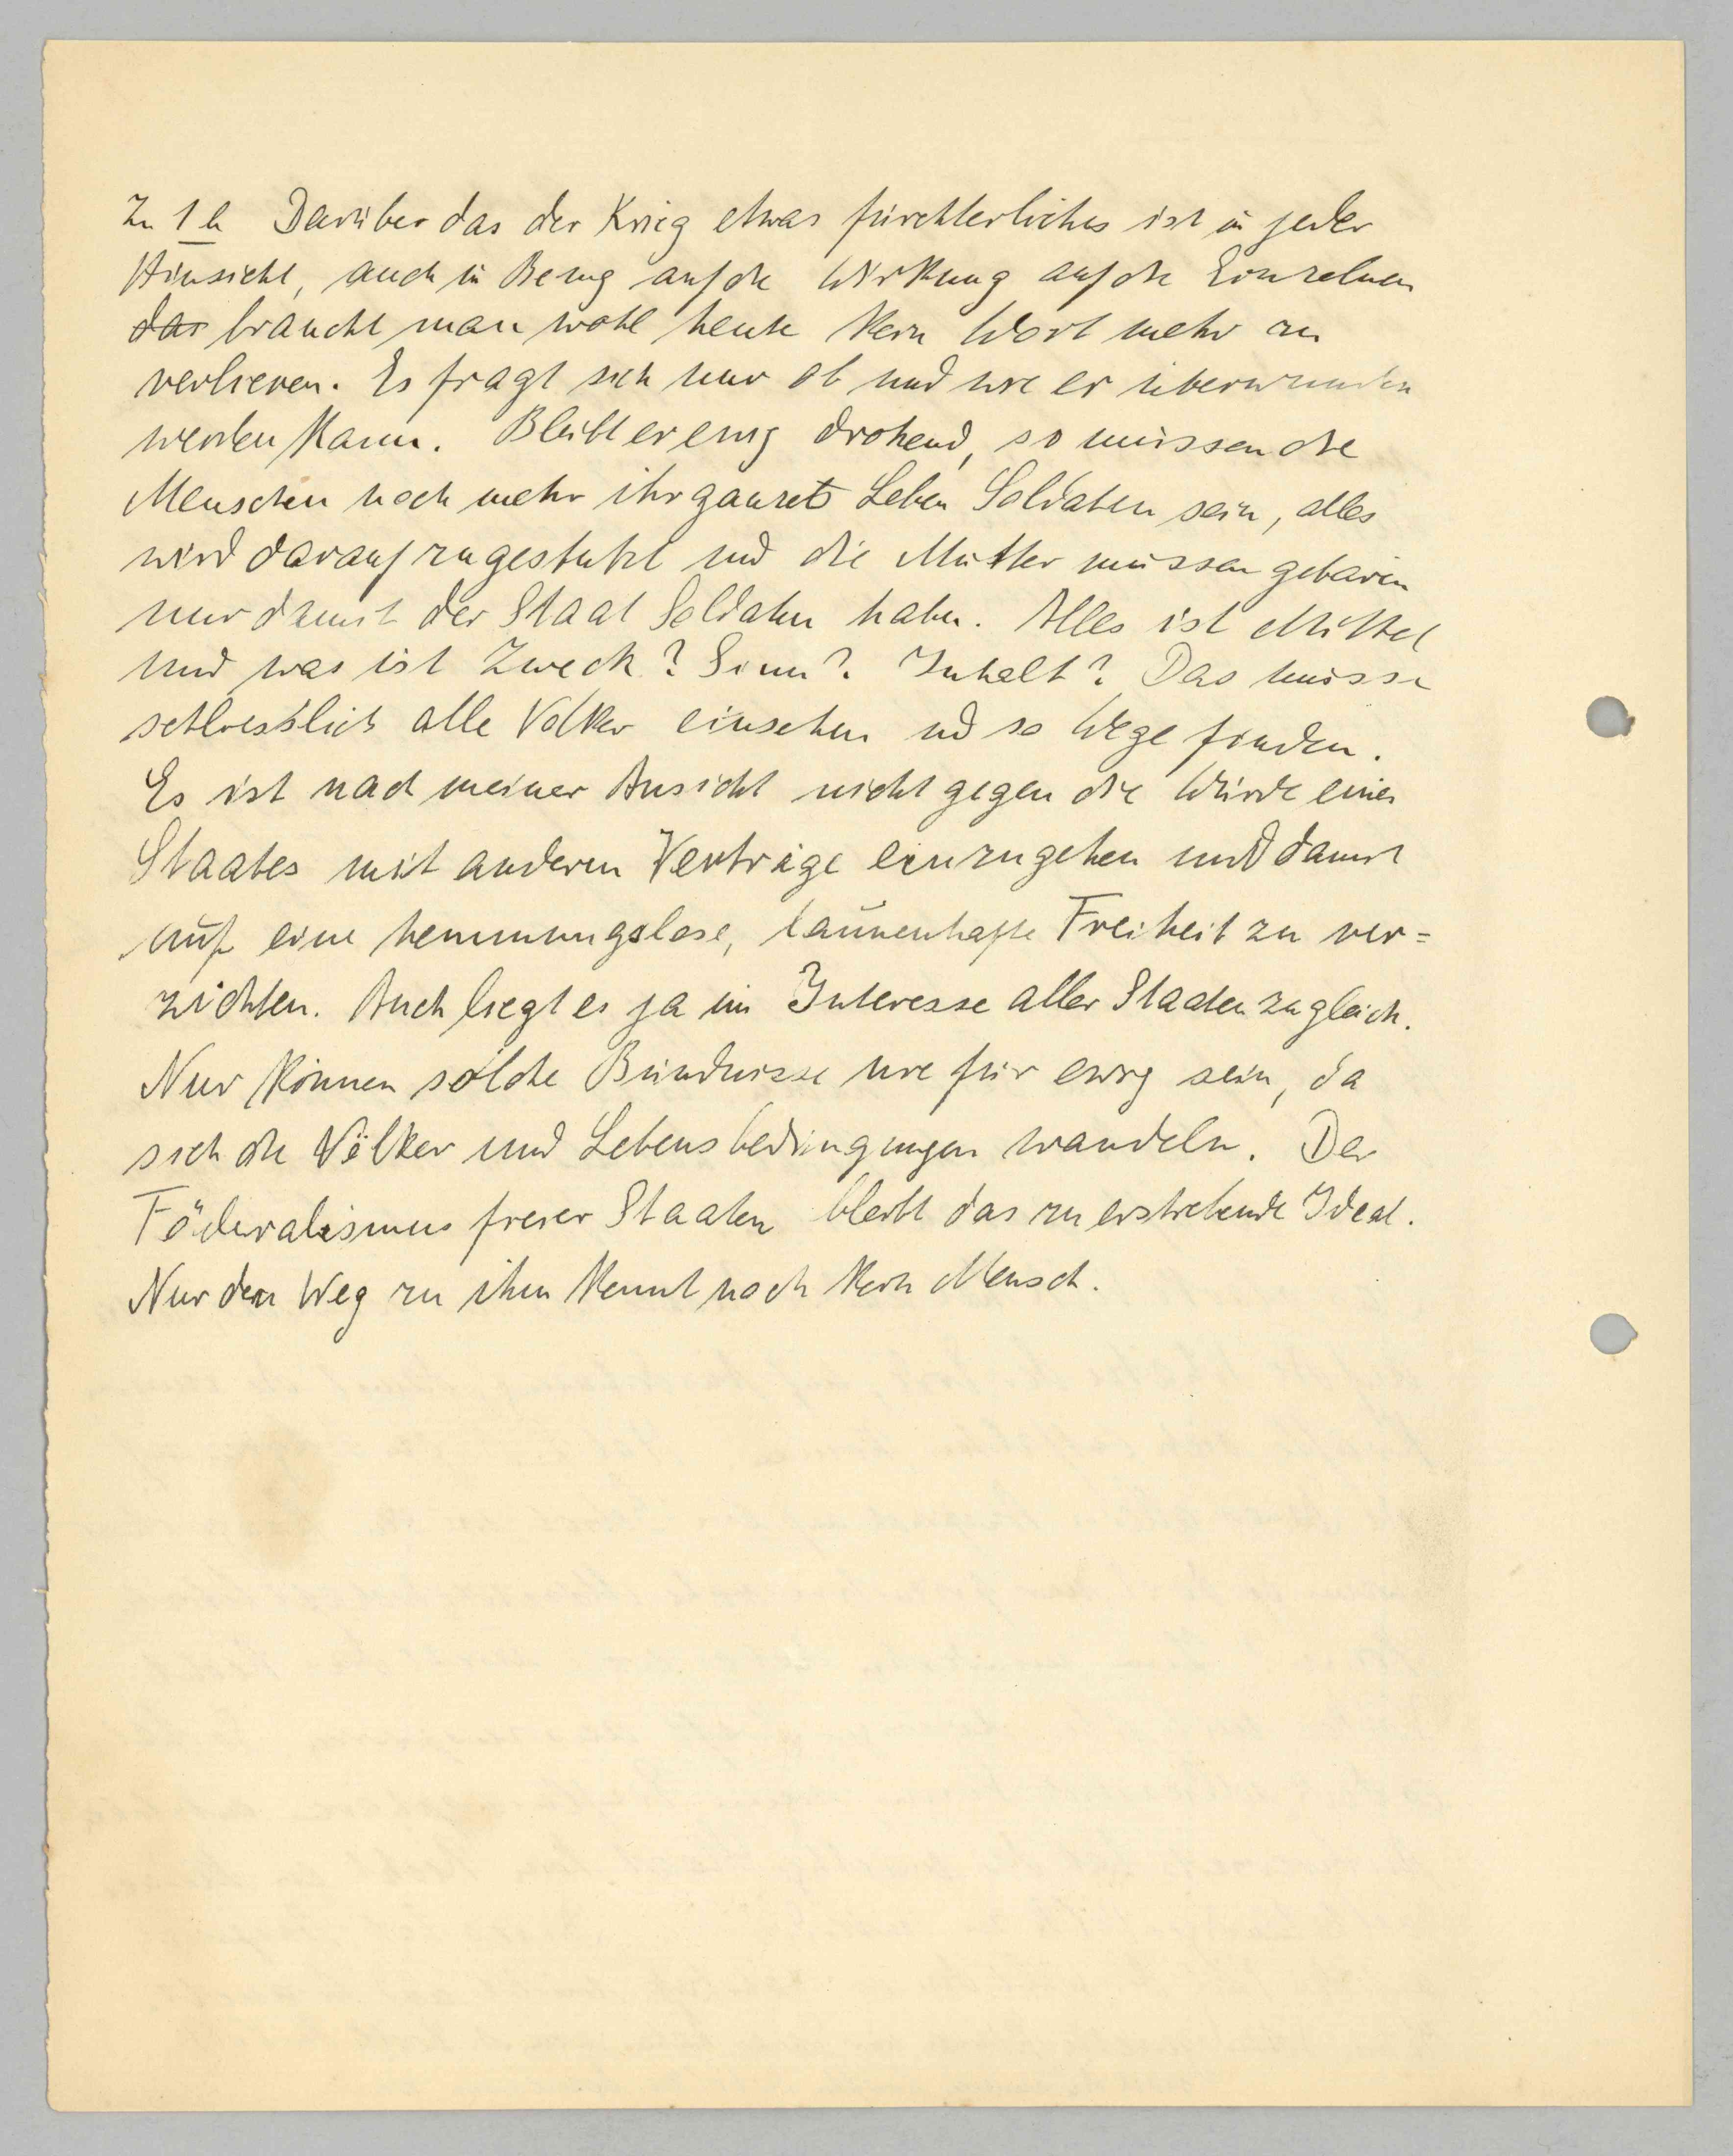 Zu 1 b Darüber das der Krieg etwas fürchterliches ist in jeder
Hinsicht, auch in Bezug auf die Wirkung auf die Einzelnen
das braucht man wohl heute kein Wort mehr zu
verlieren. Es fragt sich nur ob und wie er überwunden
werden kann. Bleibt er ewig drohend, so müssen die
Menschen noch mehr ihr ganzes Leben Soldaten sein, alles
wird darauf zugestutzt und die Mütter müssen gebären
nur damit der Staat Soldaten habe. Alles ist Mittel
und was ist Zweck? Sinn? Inhalt? Das müssen
schliesslich alle Völker einsehen ud so Wege finden.
Es ist nach meiner Ansicht nicht gegen die Würde eines
Staates mit anderen Verträge einzugehen und damit
auf eine hemmungslose, launenhafte Freiheit zu ver=
zichten. Auch liegt es ja im Interesse aller Staaten zugleich.
Nur können solche Bündnisse nie für ewig sein, da
sich die Völker und Lebensbedingungen wandeln. Der
Föderalismus freier Staaten bleibt das zu erstrebende Ideal.
Nur den Weg zu ihm kennt noch kein Mensch.